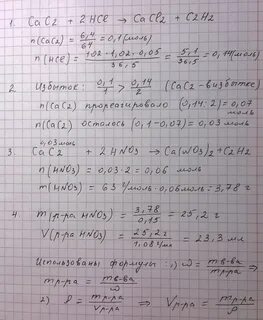 1. CaC2 + 2HCl → CaCl2 + C2H2
n(CaC2) = 6,4/64 = 0,1 (моль)
n(HCl) = 102·1,02·0,05/36,5 = 5,1/36,5 = 0,14 (моль)
2. Избыток: 0,1/1 > 0,14/2 (CaC2 - в избытке)
n(CaC2) прореагировало (0,14:2) = 0,07 моль
n(CaC2) осталось (0,1-0,07) = 0,03 моль
0,03 моль
3. CaC2 + 2HNO3 → Ca(NO3)2 + C2H2
n(HNO3) = 0,03·2 = 0,06 моль
m(HNO3) = 63 г/моль·0,06 моль = 3,78 г
4. m(р-ра HNO3) = 3,78/0,15 = 25,2 г
V(р-ра HNO3) = 25,2 г/1.08 г/мл = 23,3 мл
Использованы формулы: 1) ω = m в-ва/m р-ра ⇒
m р-ра = m в-ва/ω
2) ρ = m р-ра/V р-ра ⇒ V р-ра = m р-ра/ρ